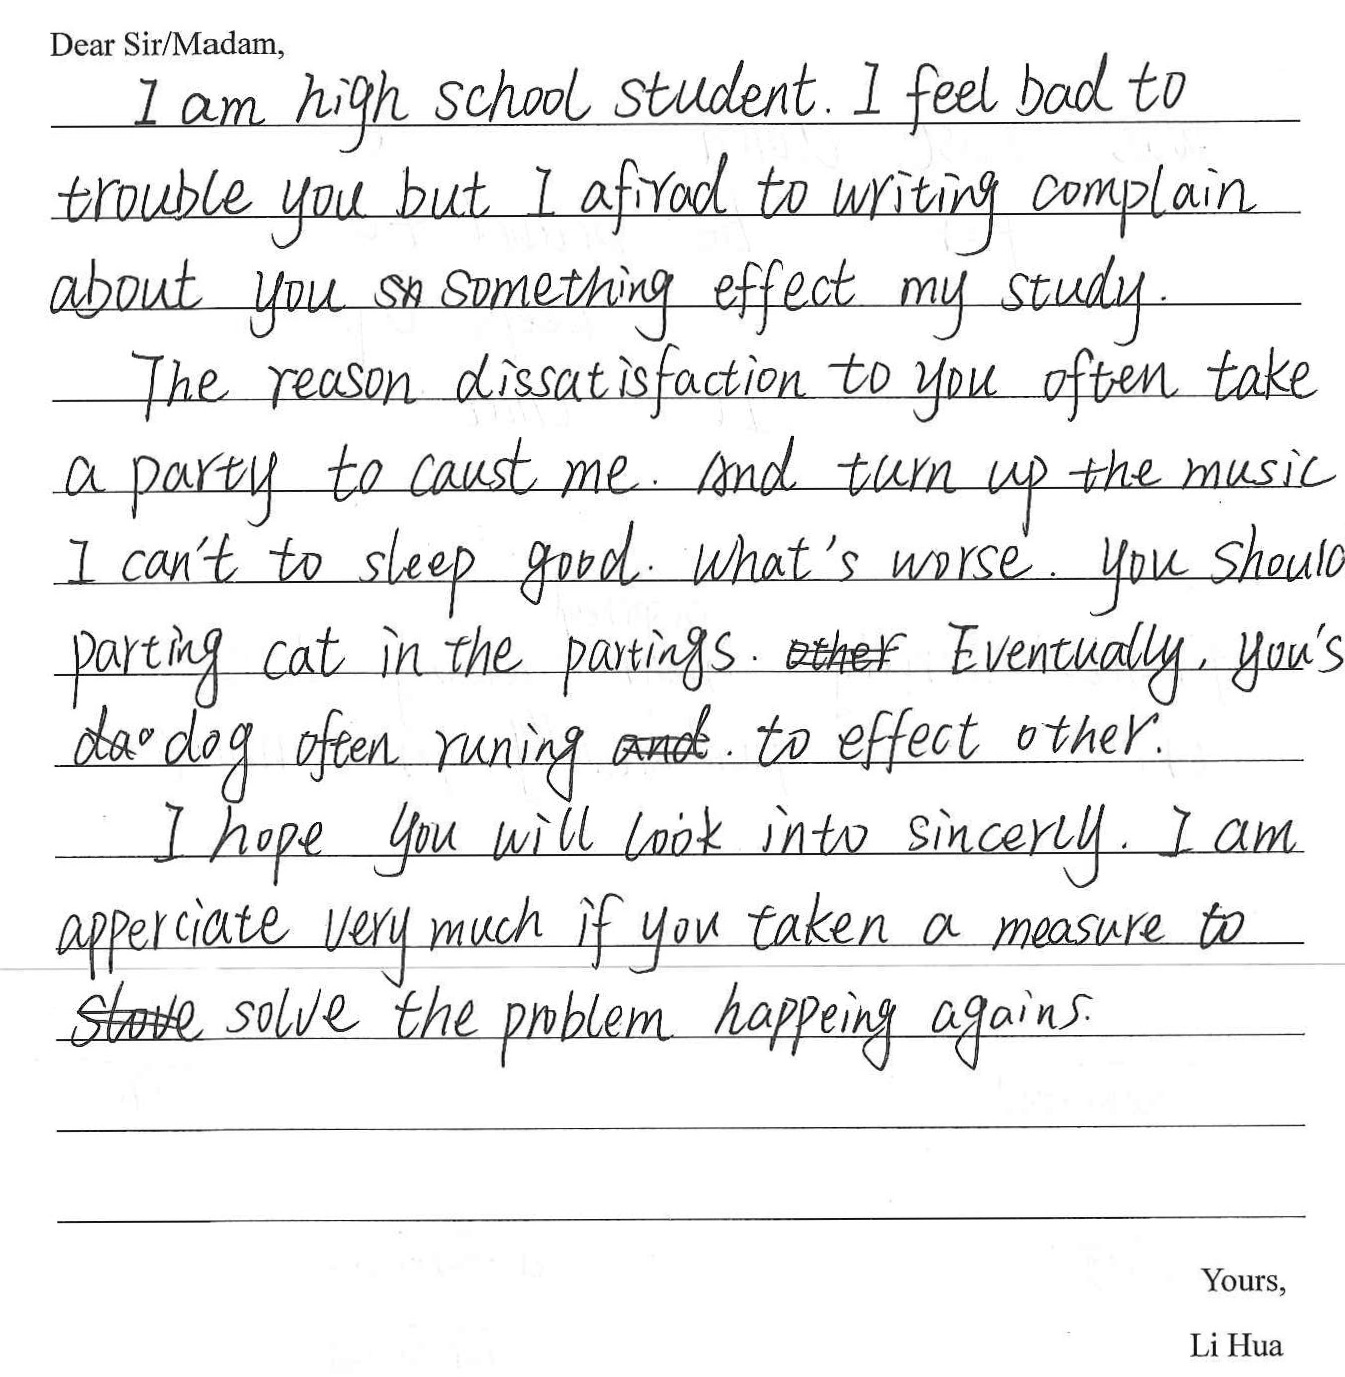 Dear Sir/Madam,
I am high school student. I feel bad to
trouble you but I afirad to writing complain
about you something effect my study.
The reason dissatisfaction to you often take
a party to caust me. And turn up the music
I can't to sleep good. What's worse. you should
parting cat in the partings. other Eventually, you's
da dog often runing and. to effect other.
I hope you will look into sincerly. I am
apperciate very much if you taken a measure to
stove solve the problem happeing agains.
Yours,
Li Hua